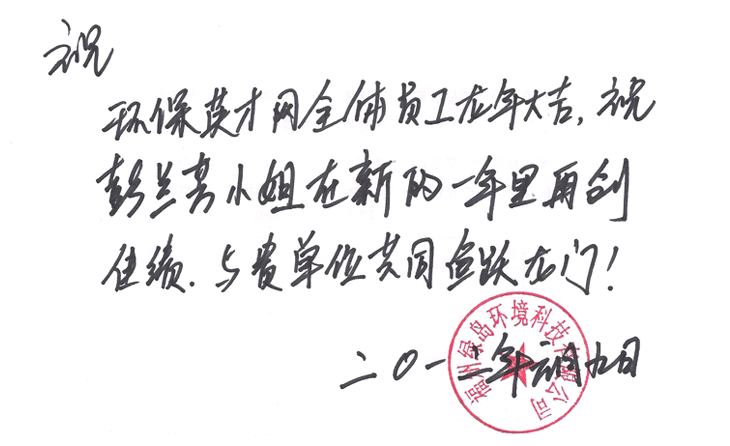 祝
环保英才网全体员工龙年大吉，祝
彭兰芳小姐在新的一年里再创
佳绩、与贵单位共同鱼跃龙门！
二〇一二年元月九日
福州绿岛环境科技有限公司